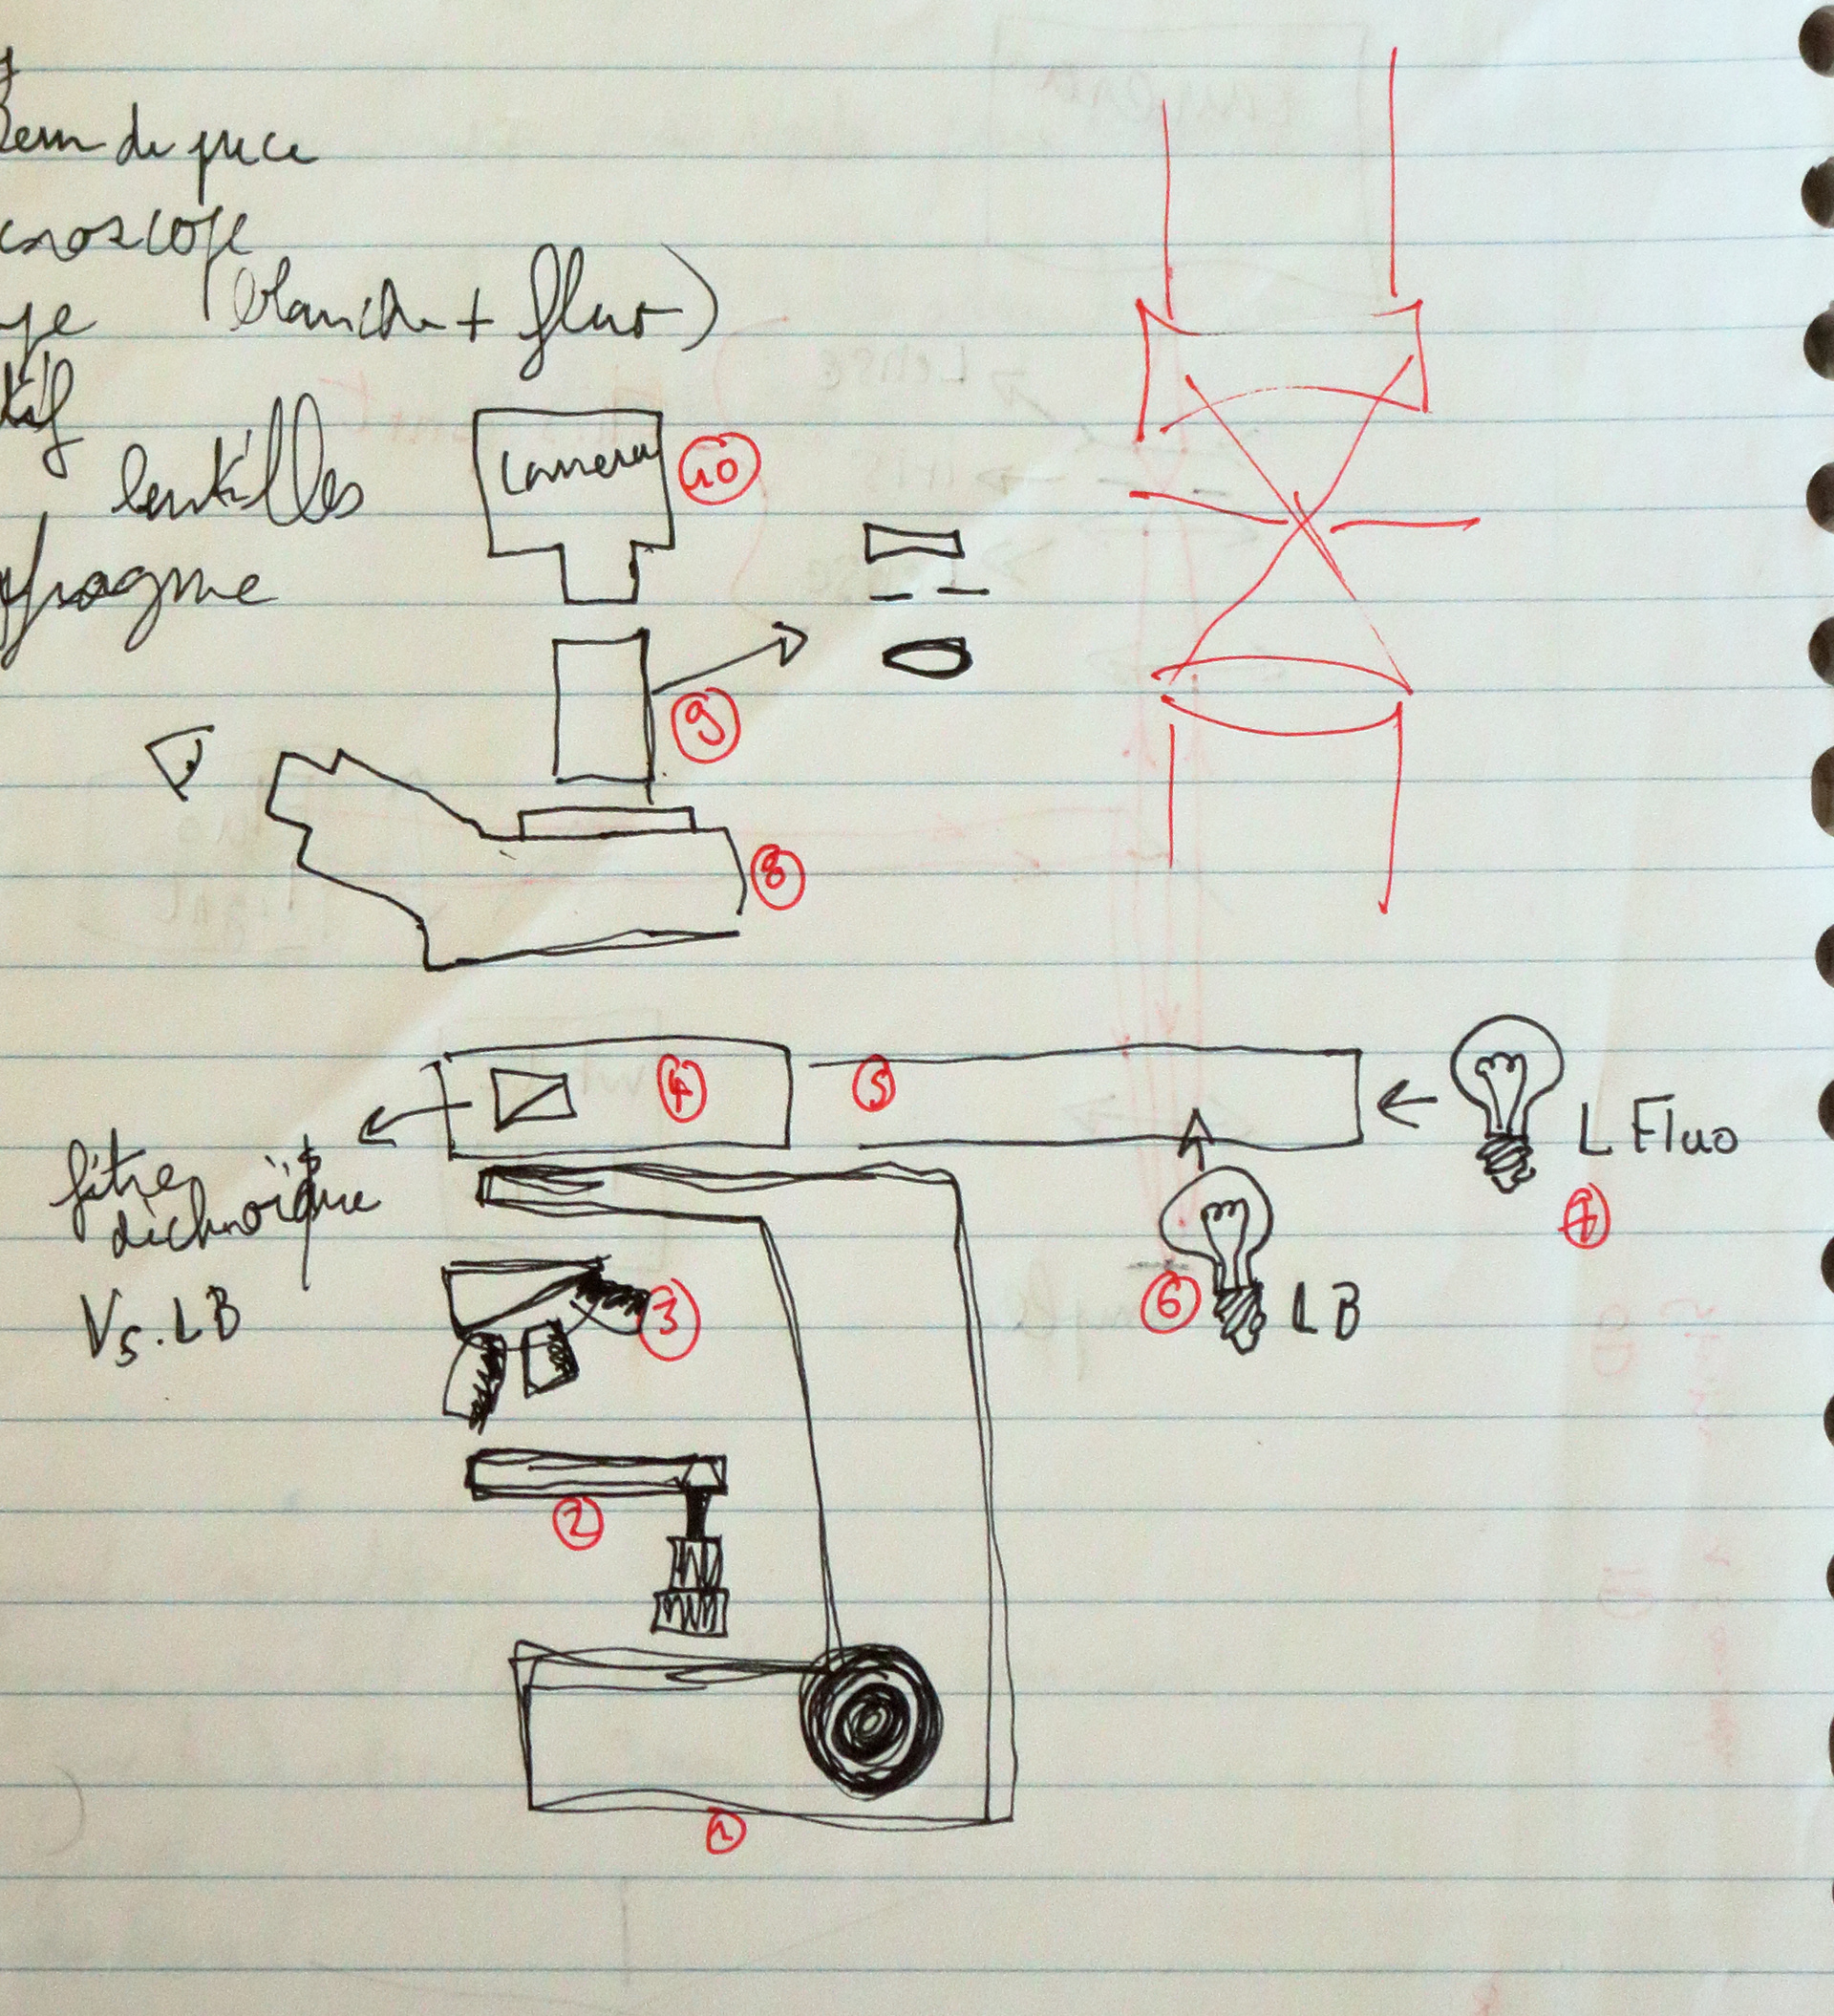 de puce
(blanche + fluo)
lentilles
camera
10
9
8
4
5
L Fluo
7
filtre
dichroïque
Vs. LB
3
6
LB
2
1